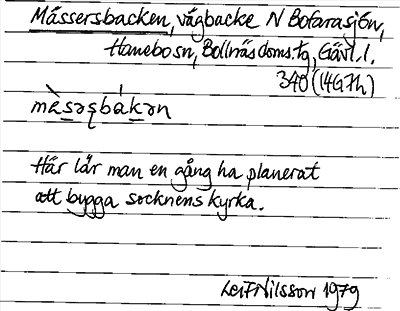 Mässersbacken, vägbacke N Bofarasjön,
Hanebo sn, Bollnäs doms.tg, Gävl. l.
340 (14G7h)
mὰsəʂbákən
Här lär man en gång ha planerat
att bygga socknens kyrka.
Leif Nilsson 1979